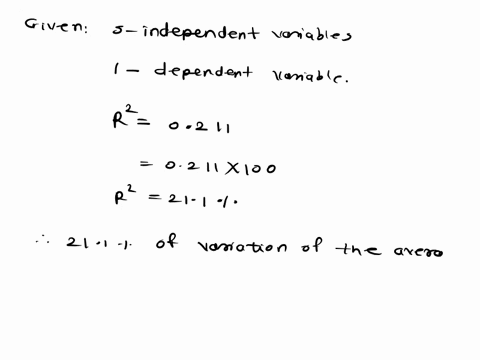 Given: 5-independent variables
1 - dependent variable.
R² = 0.211
= 0.211 X 100
R² = 21.1 %.
∴ 21.1 % of variation of the avera